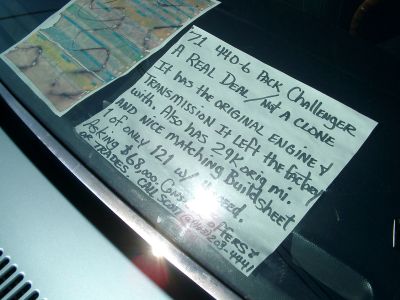 '71 440-6 Pack Challenger
A Real Deal/not a clone
It has the original engine &
Transmission It left the factory
with. Also has 29K orig mi.
and nice matching Buildsheet
1 of only 121 w/
Asking $68,000 Offers &
or Trades, Call Scott